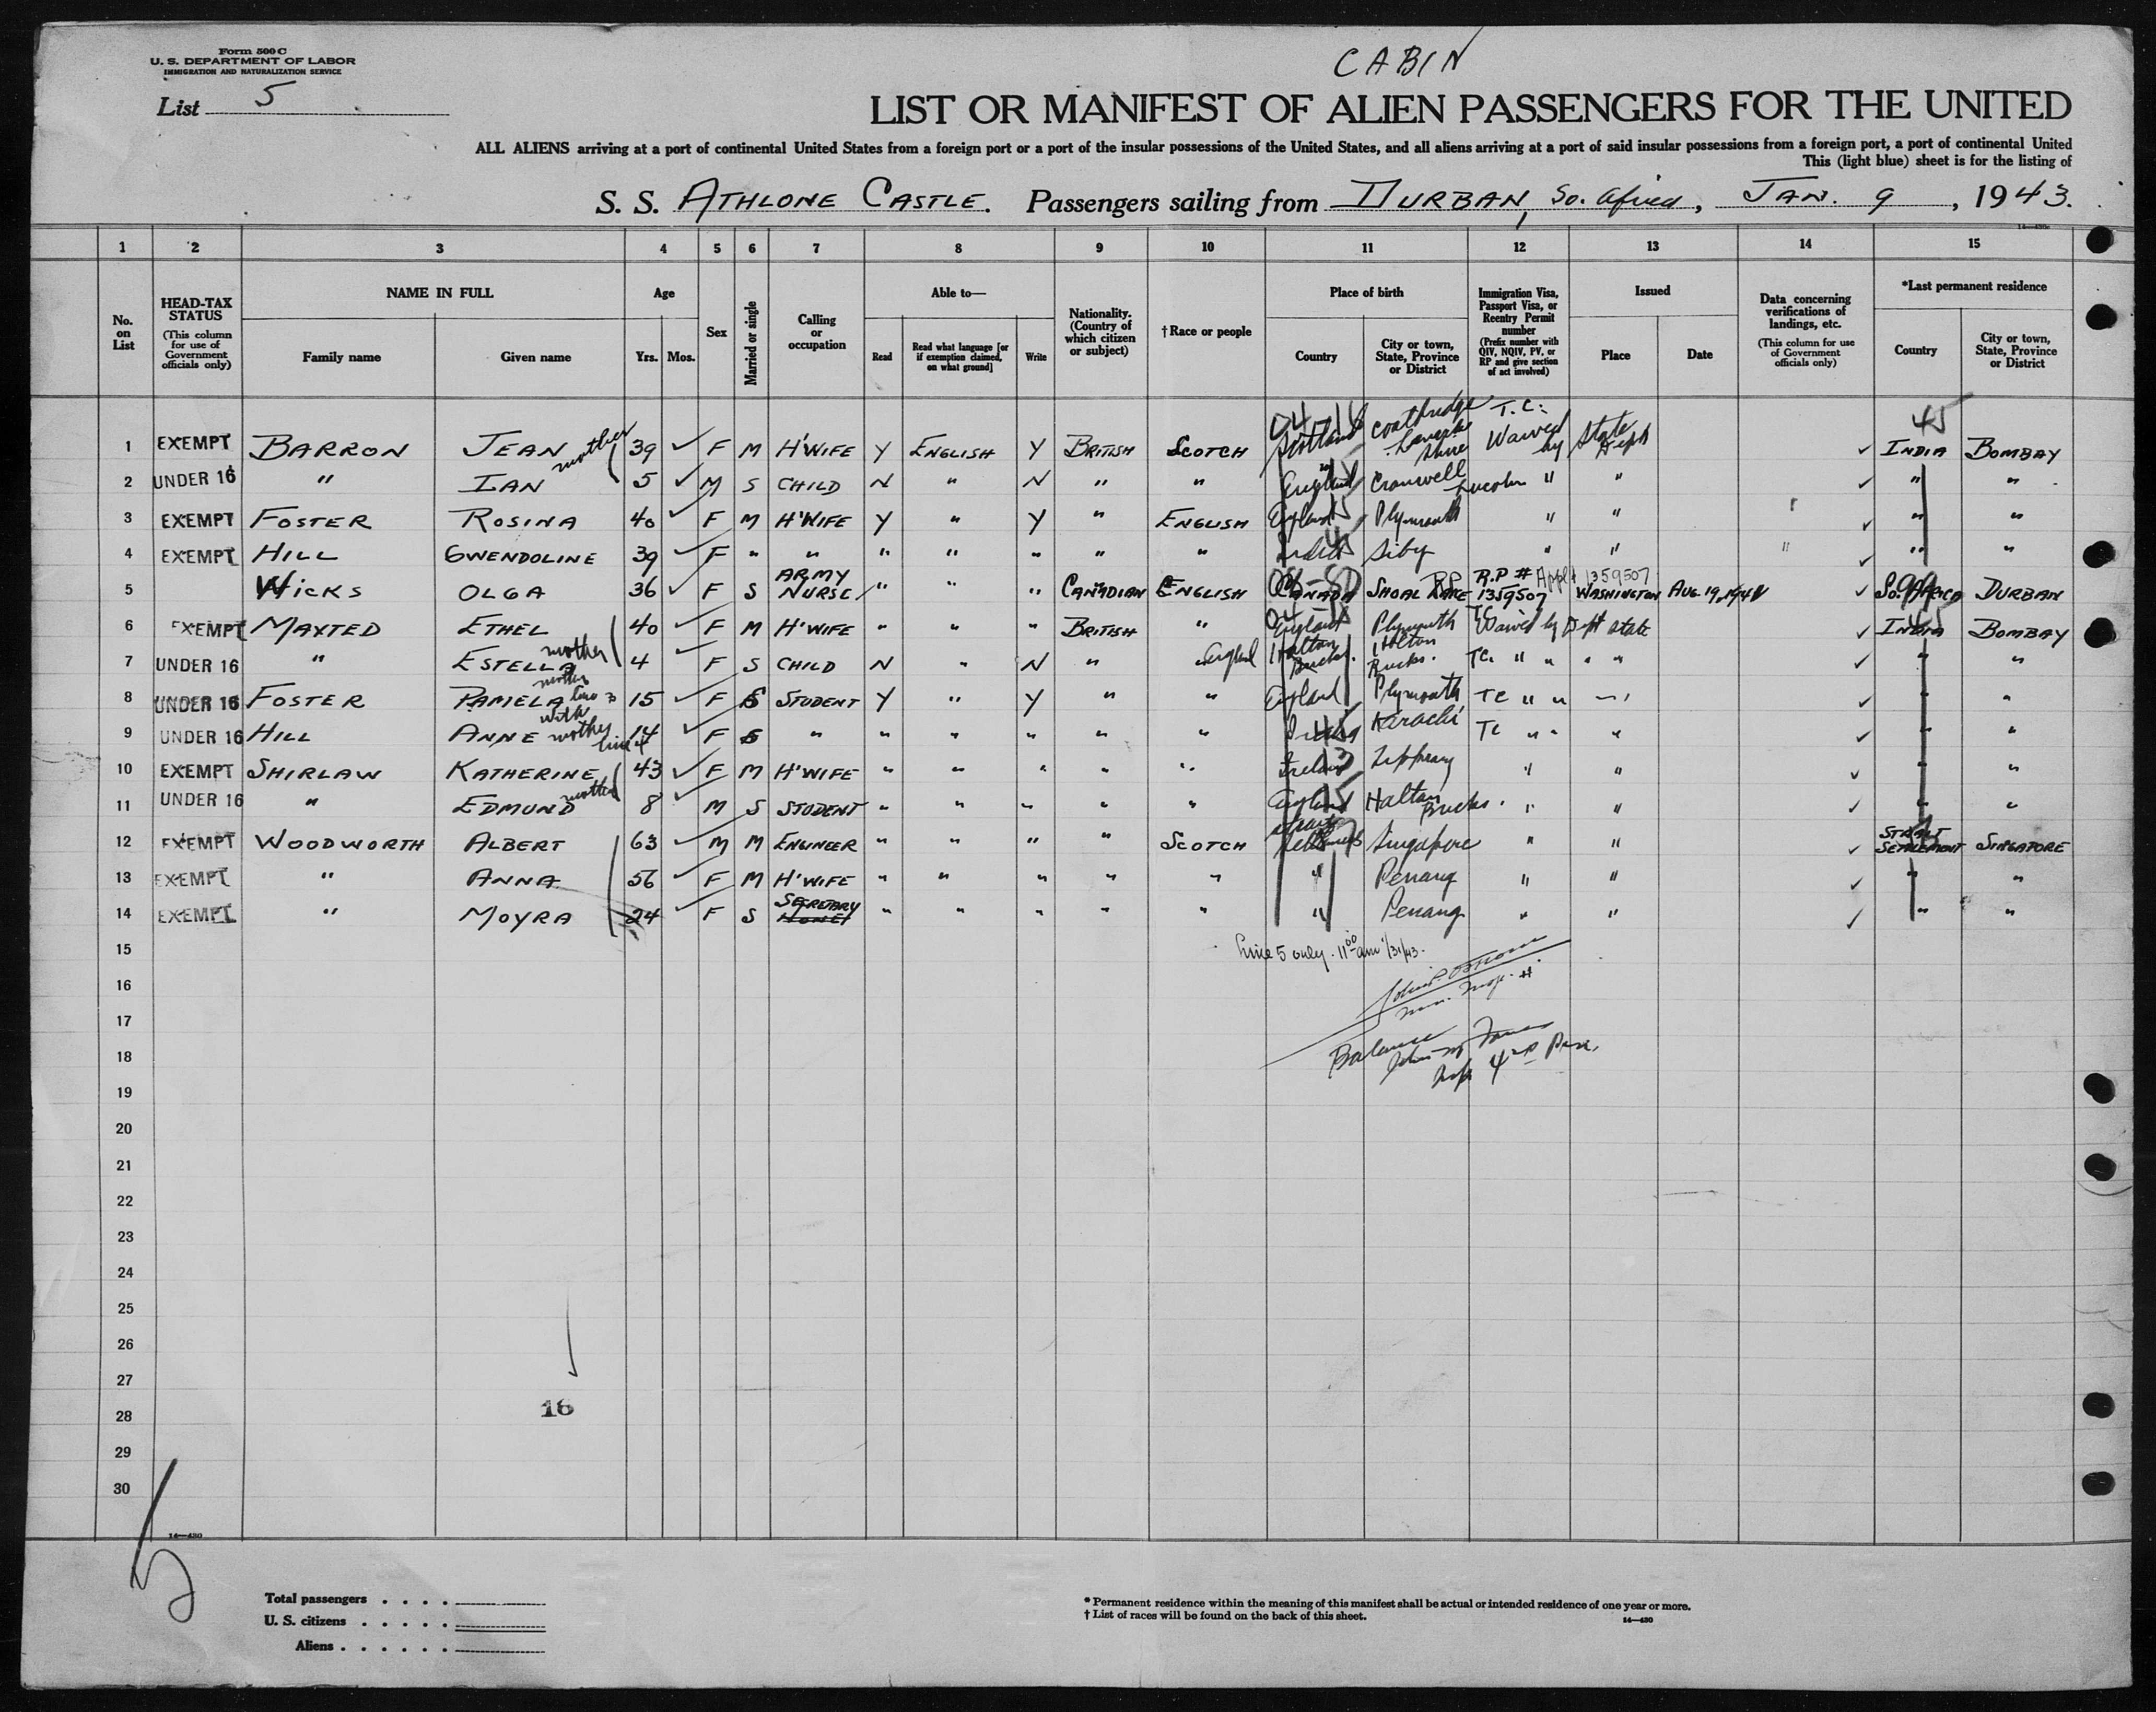 Form 500 C
U. S. DEPARTMENT OF LABOR
IMMIGRATION AND NATURALIZATION SERVICE
List 5
CABIN
LIST OR MANIFEST OF ALIEN PASSENGERS FOR THE UNITED
ALL ALIENS arriving at a port of continental United States from a foreign port or a port of the insular possessions of the United States, and all aliens arriving at a port of said insular possessions from a foreign port, a port of continental United
This (light blue) sheet is for the listing of
S. S. ATHLONE CASTLE. Passengers sailing from DURBAN, So. Africa, JAN. 9, 1943.
1 2 3 4 5 6 7 8 9 10 11 12 13 14 15
No. on List
HEAD-TAX STATUS (This column for use of Government officials only)
NAME IN FULL
Family name Given name
Age
Yrs. Mos.
Sex
Married or single
Calling or occupation
Able to—
Read Read what language [or if exemption claimed, on what ground] Write
Nationality. (Country of which citizen or subject)
†Race or people
Place of birth
Country City or town, State, Province or District
Immigration Visa, Passport Visa, or Reentry Permit number (Prefix number with QIV, NQIV, PV, or RP and give section of act involved)
Issued
Place Date
Data concerning verifications of landings, etc. (This column for use of Government officials only)
*Last permanent residence
Country City or town, State, Province or District
45
1 EXEMPT BARRON JEAN mother 39 ✓ F M H'WIFE Y ENGLISH Y BRITISH SCOTCH Scotland Coatbridge Lanarkshire T.C. Waived by State Dept ✓ INDIA BOMBAY
2 UNDER 16 " IAN 5 ✓ M S CHILD N " N " " England Cranwell Lincoln " " ✓ " "
3 EXEMPT FOSTER ROSINA 40 ✓ F M H'WIFE Y " Y " ENGLISH England Plymouth " " ✓ " "
4 EXEMPT HILL GWENDOLINE 39 ✓ F " " " " " " " India Siby " " " ✓ " "
5 WICKS OLGA 36 ✓ F S ARMY NURSE " " " CANADIAN ENGLISH CANADA SHOAL LAKE R.P # 1359507 Appl # 1359507 WASHINGTON AUG. 19, ✓ SO. AFRICA DURBAN
6 EXEMPT MAXTED ETHEL 40 ✓ F M H'WIFE " " " BRITISH " England Plymouth TC Waived by Dept State ✓ INDIA BOMBAY
7 UNDER 16 " ESTELLA mother 4 ✓ F S CHILD N " N " " England Halton Bucks. Halton Bucks. TC. " " " " ✓ " "
8 UNDER 16 FOSTER PAMELA mother line 3 15 ✓ F S STUDENT Y " Y " " England Plymouth TC " " ✓ " "
9 UNDER 16 HILL ANNE with mother line 4 14 ✓ F S " " " " " " India Karachi TC " " " ✓ " "
10 EXEMPT SHIRLAW KATHERINE 43 ✓ F M H'WIFE " " " " " Ireland Tipperary " " ✓ " "
11 UNDER 16 " EDMUND mother 8 ✓ M S STUDENT " " " " " England Halton Bucks. " " ✓ " "
12 EXEMPT WOODWORTH ALBERT 63 ✓ M M ENGINEER " " " " SCOTCH Straits Settlements Singapore " " ✓ STRAIT SETTLEMENT SINGAPORE
13 EXEMPT " ANNA 56 ✓ F M H'WIFE " " " " " " Penang " " ✓ " "
14 EXEMPT " MOYRA 24 ✓ F S SECRETARY " " " " " " Penang " " ✓ " "
15 Line 5 only. 11 00 am 1/31/43.
16
17
18 Balance
19
20
21
22
23
24
25
26
27
28 16
29
30
14—430
5
Total passengers . . . .
U. S. citizens . . . . .
Aliens . . . . . .
* Permanent residence within the meaning of this manifest shall be actual or intended residence of one year or more.
† List of races will be found on the back of this sheet.
14—430